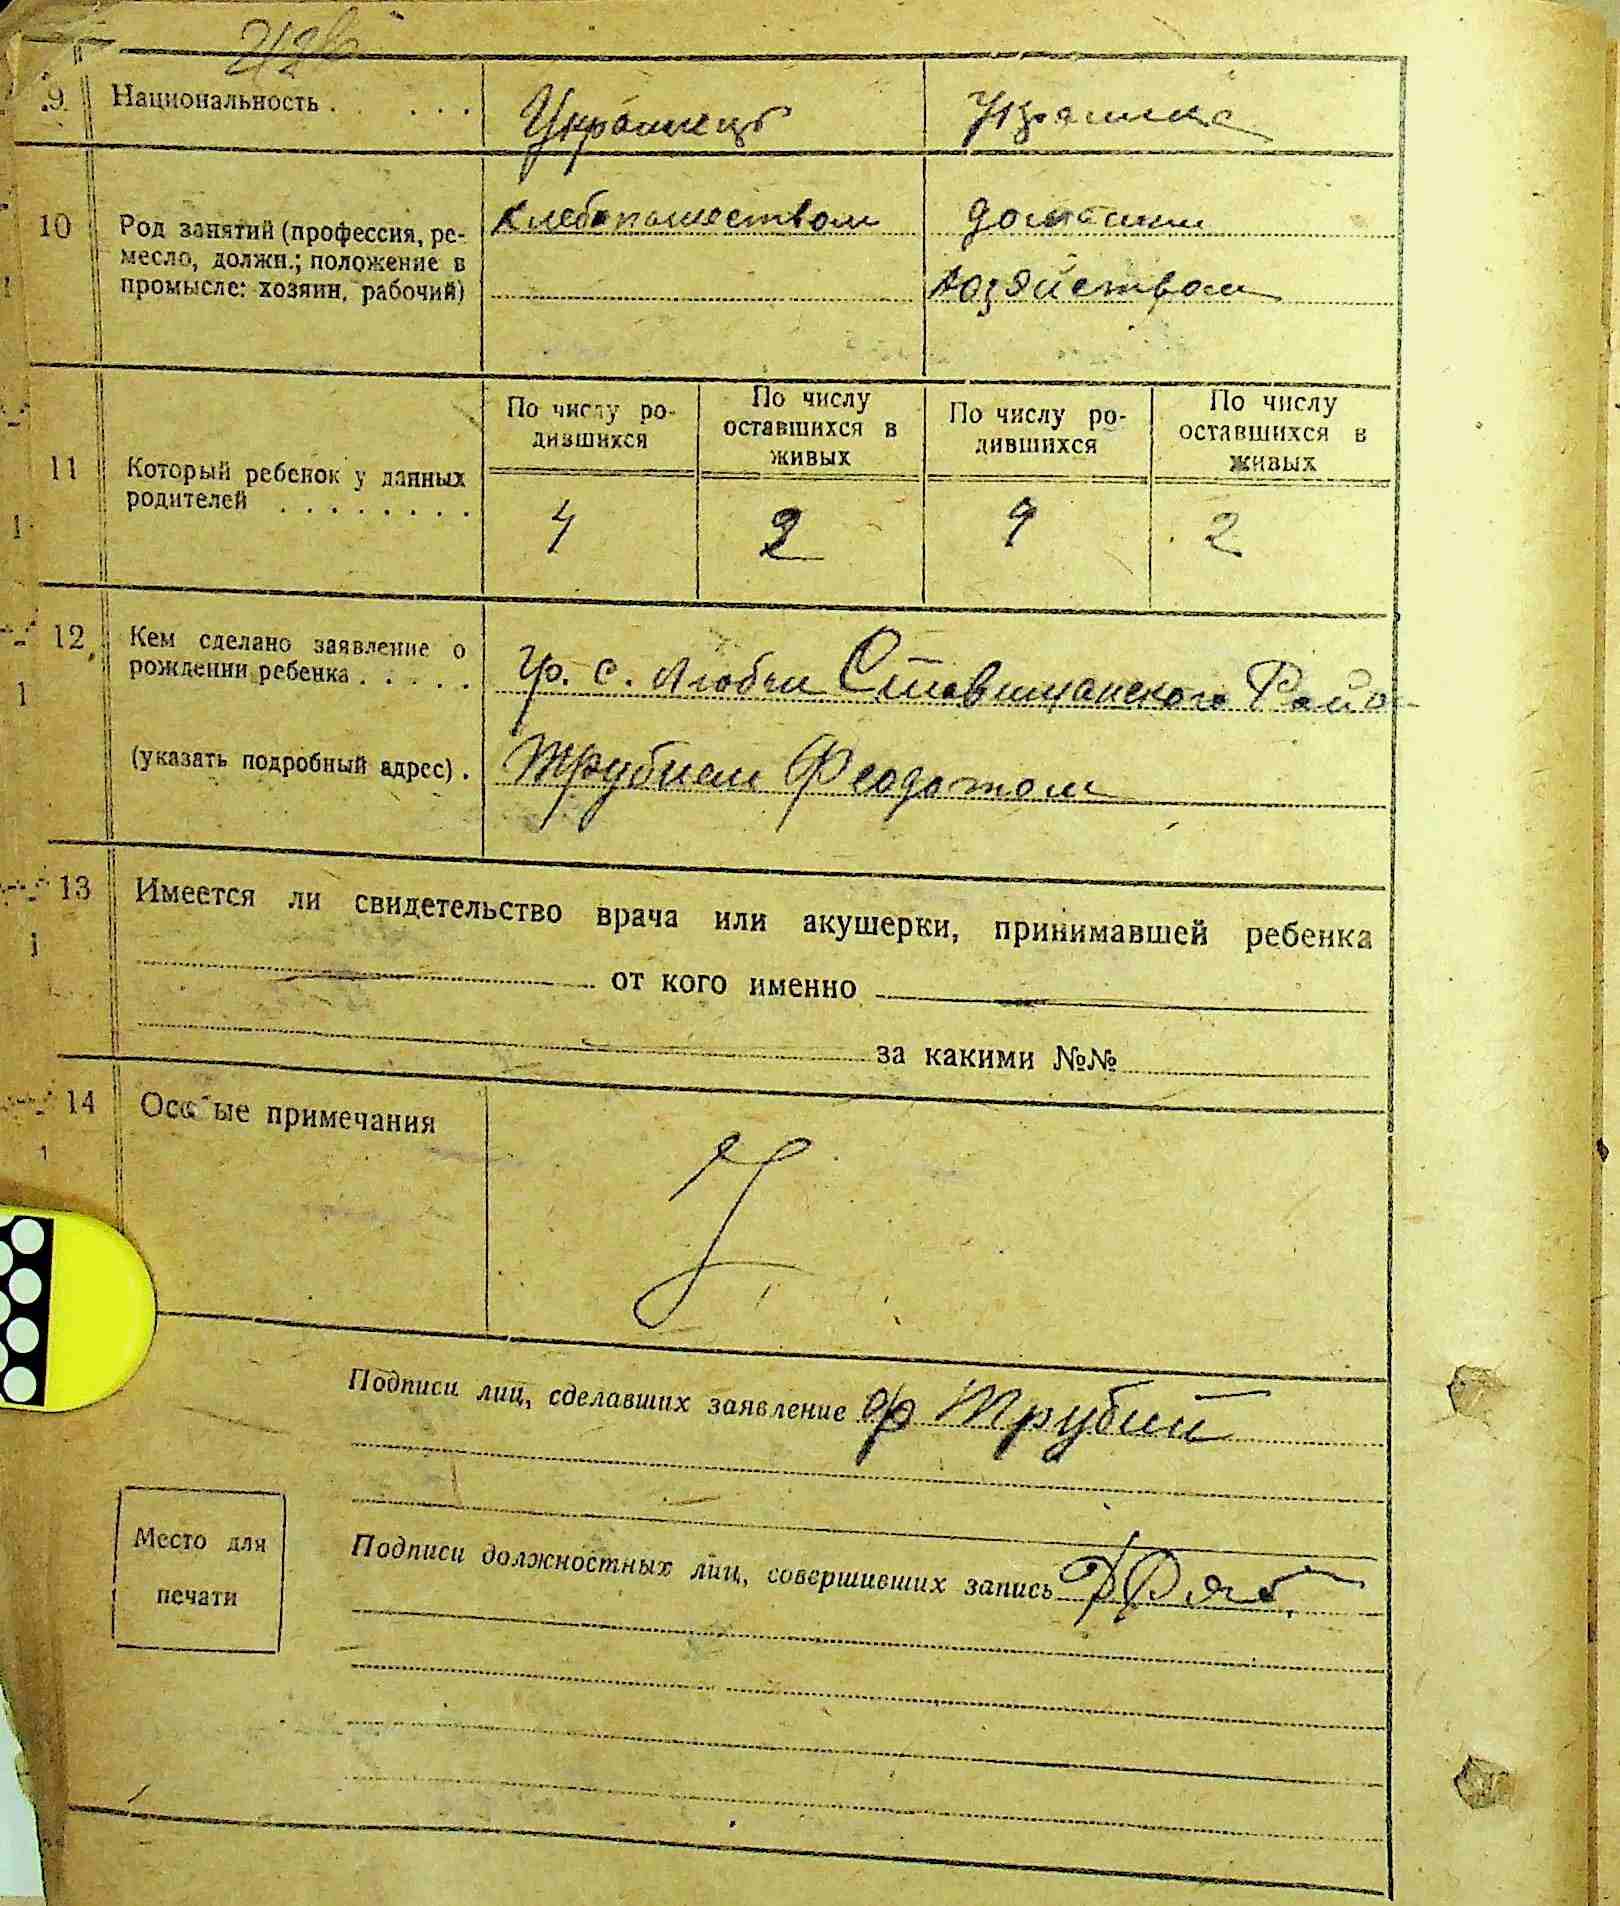 9 Национальность . . . . . Украинець Украинка
10 Род занятий (профессия, ре-
месло, должн.; положение в
промысле: хозяин, рабочий)
Хлебопашеством
домашним
хозяйством
11 Который ребенок у данных
родителей . . . . . . . .
По числу ро-
дившихся
По числу
оставшихся в
живых
По числу ро-
дившихся
По числу
оставшихся в
живых
4 2 4 2
12 Кем сделано заявление о
рождении ребенка . . . . .
(указать подробный адрес) .
гр. с. Любчи Ставищанского Район
Трубием Феодотом
13 Имеется ли свидетельство врача или акушерки, принимавшей ребенка
от кого именно
за какими №№
14 Особые примечания
Подписи лиц, сделавших заявление Ф Трубий
Место для
печати
Подписи должностных лиц, совершивших запись